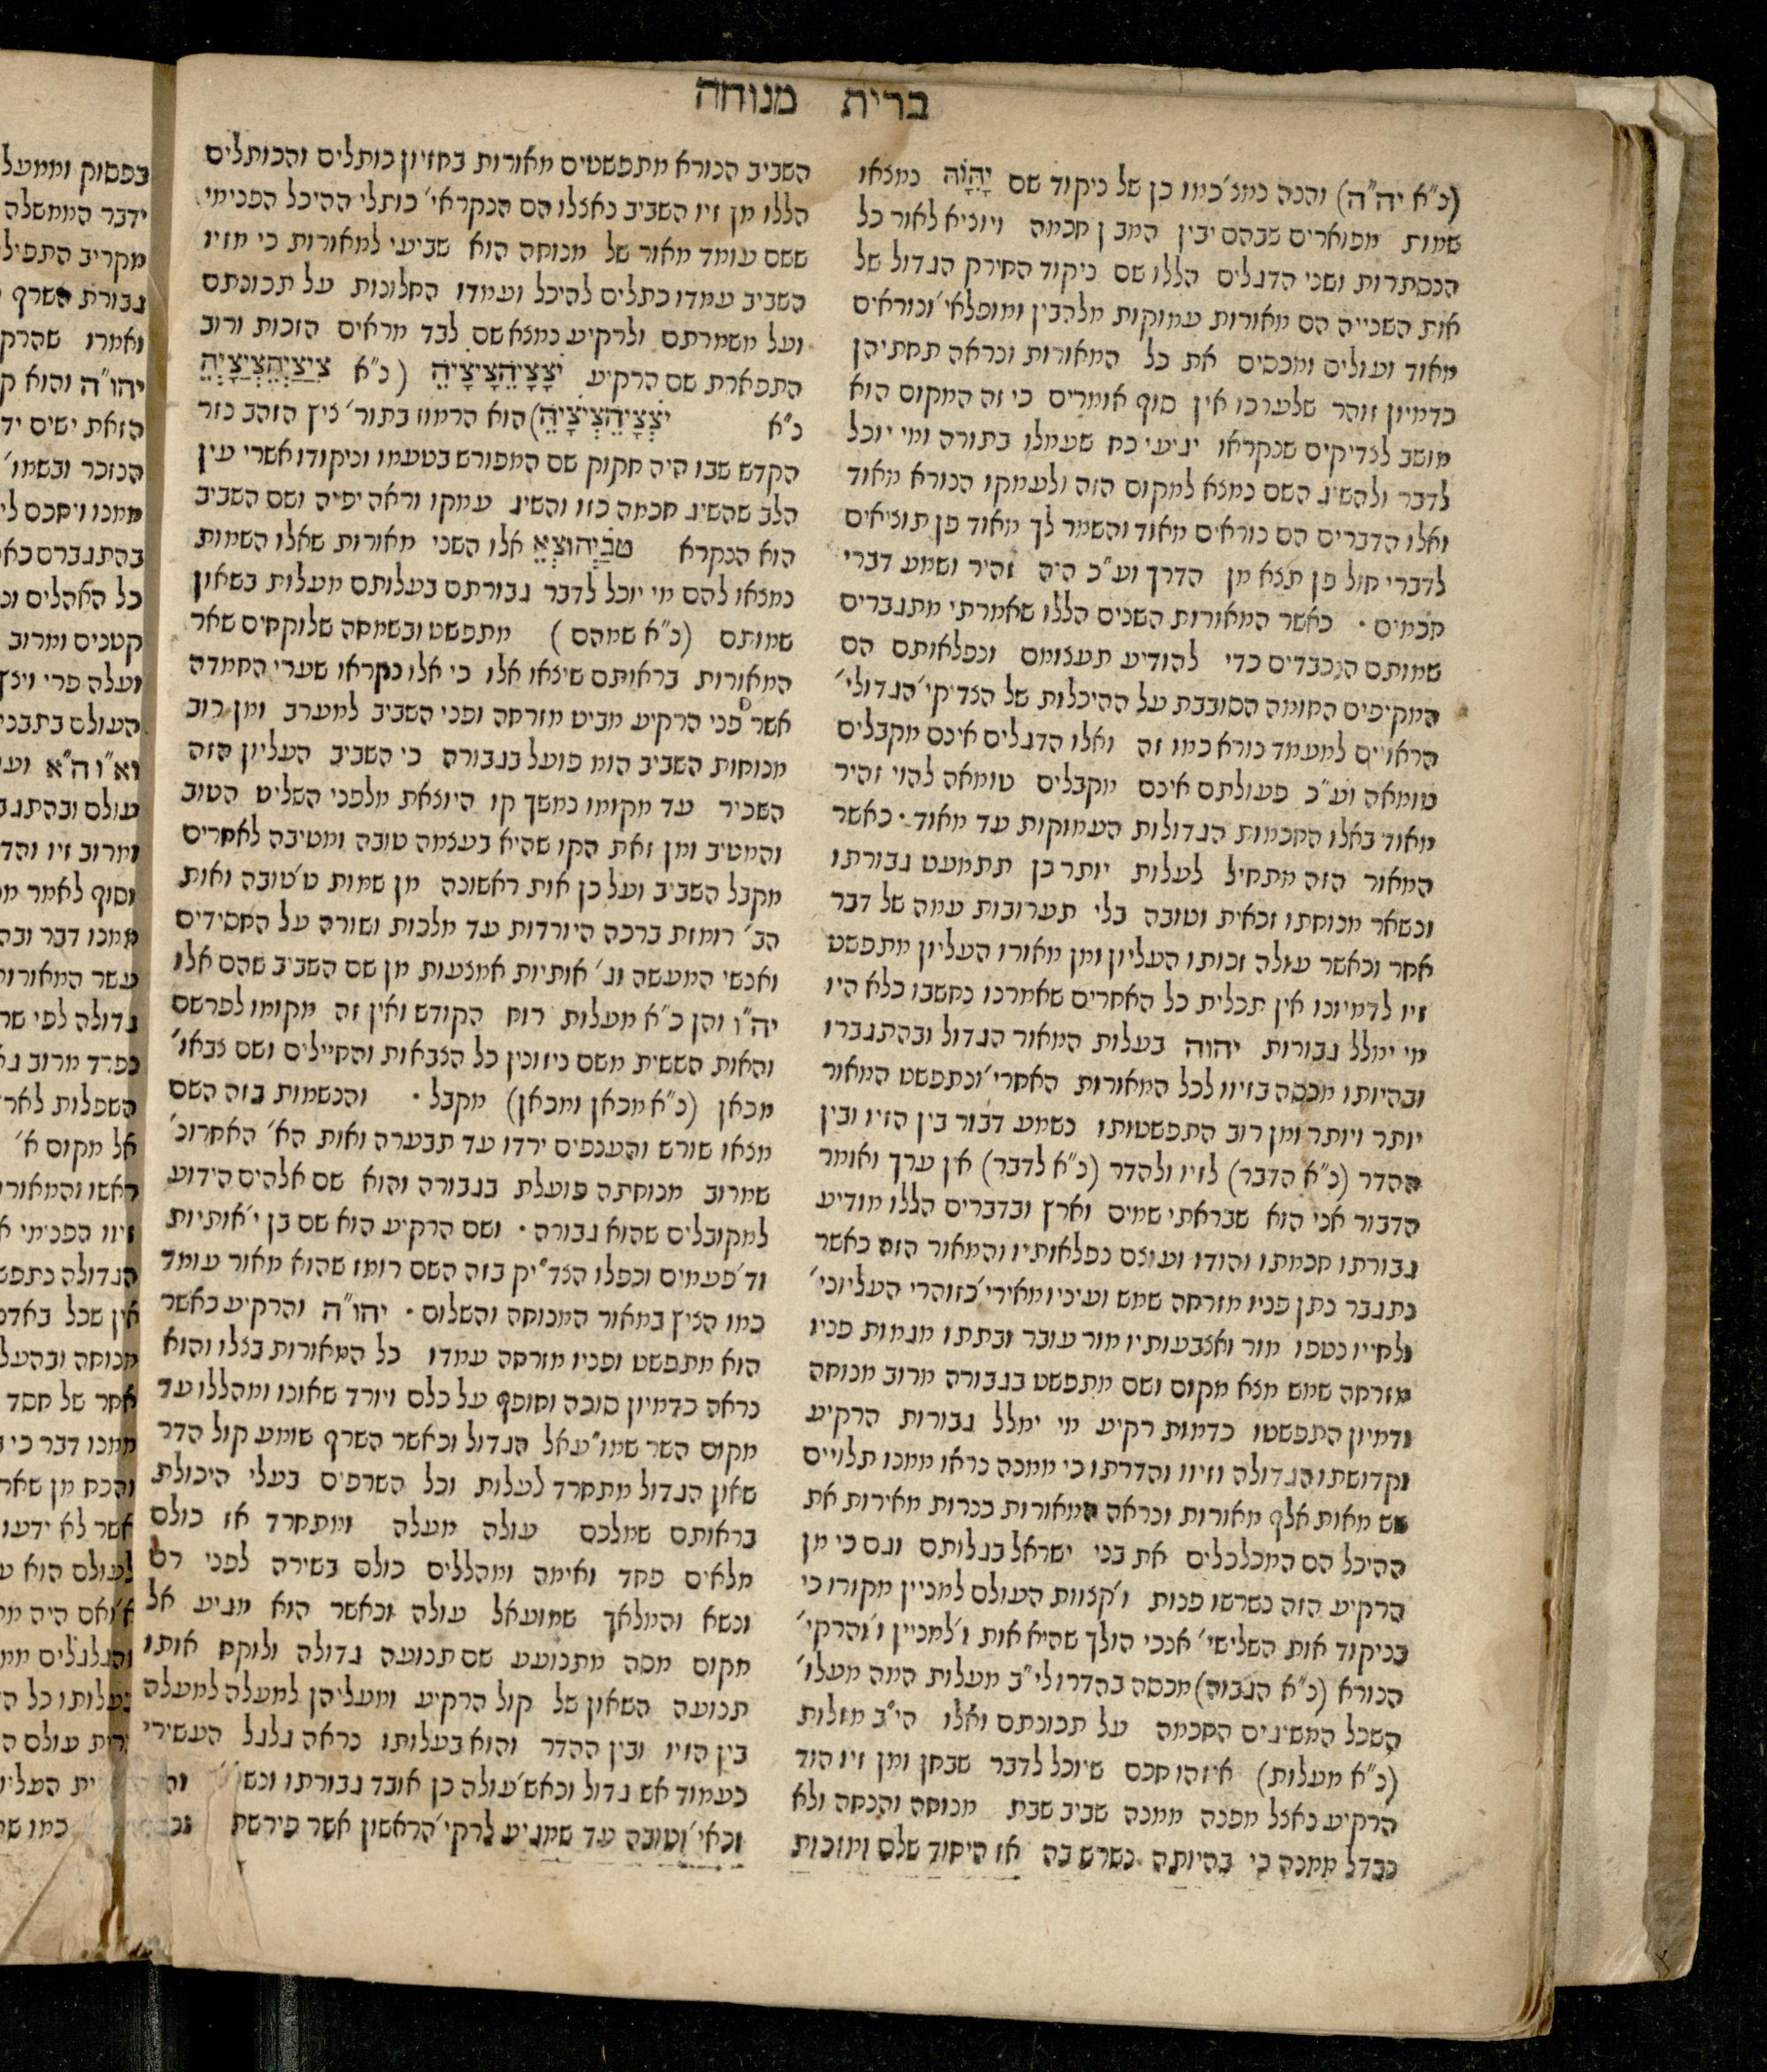 ברית מנוחה
(נ״א יה״ה) והנה נמצ׳ כמו כן של ניקוד שם יָהֵוָה נמצאו
שמות מפוארים שבהם יבין המבין חכמה ויוציא לאור כל
הנסתרות ושני הדגלים הללו שם ניקוד החירק הגדול של
אות השנייה הם מאורות עמוקות מלהבין ומופלאי׳ ונוראים
מאוד ועולים ומכסים את כל המאורות ונראה תחתיהן
כדמיון זוהר שלערכו אין סוף אומרים כי זה המקום הוא
מושב לצדיקים שנקראו יגיעי כח שעמלו בתורה ומי יוכל
לדבר ולהשיג השם נמצא למקום הזה ולעמקו הנורא מאוד
ואלו הדברים הם נוראים מאוד והשמר לך מאוד פן תוציאים
לדברי חול פן תצא מן הדרך וע״כ היה זהיר ושמע דברי
חכמים. כאשר המאורות השנים הללו שאמרתי מתגברים
שמותם הנכבדים כדי להודיע תעצומם ונפלאותם הם
המקיפים החומה הסובבת על ההיכלות של הצדיקי׳ הגדולי׳
הראויים למעמד נורא כמו זה ואלו הדגלים אינם מקבלים
טומאה וע״כ פעולתם אינם מקבלים טומאה להוי זהיר
מאוד באלו החכמות הגדולות העמוקות עד מאוד. כאשר
המאור הזה מתחיל לעלות יותר כן תתמעט גבורתו
ונשאר מנוחתו זכאית וטובה בלי תערובות עמה של דבר
אחר וכאשר עולה זכותו העליון ומן מאורו העליון מתפשט
זיו לדמיונו אין תכלית כל האחרים שאמרנו נחשבו כלא היו
מי ימלל גבורות יהוה בעלות המאור הגדול ובהתגברו
ובהיותו מכסה בזיוו לכל המאורות האחרי׳ ונתפשט המאור
יותר ויותר ומן רוב התפשטותו נשמע דבור בין הזיו ובין
ההדר (נ״א הדבר) לזיו ולהדר (נ״א לדבר) אין ערך ואומר
הדבור אני הוא שבראתי שמים וארץ ובדברים הללו מודיע
גבורתו חכמתו והודו ועוצם נפלאותיו והמאור הזה כאשר
נתגבר נתן פניו מזרחה שמש ועיניו מאירי׳ כזוהרי העליוני׳
ולחייו נטפו מור ואצבעותיו מור עובר ובתתו מגמות פניו
מזרחה שמש מצא מקום ושם מתפשט בגבורה מרוב מנוחה
ודמיון התפשטו כדמות רקיע מי ימלל גבורות הרקיע
וקדושתו הגדולה וזיוו והדרתו כי ממנה נראו ממנו תלויים
שש מאות אלף מאורות ונראה המאורות כנרות מאירות את
ההיכל הם המכלכלים את בני ישראל בגלותם וגם כי מן
הרקיע הזה נשרשו פנות ו׳ קצוות העולם למניין מקורו כי
בניקוד אות השלישי׳ אנכי הולך שהיא אות ו׳ למניין ו׳ והרקי׳
הנורא (נ״א הגבוה) מכסה בהדרו לי״ב מעלות המה מעלו׳
השכל המשיגים החכמה על תכונתם ואלו הי״ב מזלות
(נ״א מעלות) איזהו חכם שיוכל לדבר שבחן ומן זיו הוד
הרקיע נאצל מפנה ממנה שביב שבת מנוחה והנחה ולא
נבדל ממנה כי בהיותה נשרש בה אז היסוד שלם ומזכות
השביב הנורא מתפשטים מאורות בחזיון כותלים והכותלים
הללו מן זיו השביב נאצלו הם הנקראי׳ כותלי ההיכל הפנימי
ששם עומד מאור של מנוחה הוא שביעי למאורות כי מזיו
השביב עמדו כתלים להיכל ועמדו החלונות על תכונתם
ועל משמרתם ולרקיע נמצא שם לבד מראים הזכות ורוב
התפארת שם הרקיע יֹצָצָיָהֵצָיצָיָהֵ (נ״א צִיצַיְהֵצְיצַיְהֵ
נ״א יֹצְצָיָהֵצְיצָיָהֵ) הוא הרמוז בתור׳ ציץ הזהב נזר
הקדש שבו היה חקוק שם המפורש בטעמו וניקודו אשרי עין
הלב שהשיג חכמה כזו והשיג עמקו וראה יפיה ושם השביב
הוא הנקרא טֹבַיְהוצְאֵ אלו השני מאורות שאלו השמות
נמצאו להם מי יוכל לדבר גבורתם בעלותם מעלות בשאון
שמותם (נ״א שמהם) מתפשט ובשמחה שלוקחים שאר
המאורות בראותם שיצאו אלו כי אלו נקראו שערי החמדה
אשר פני הרקיע מביט מזרחה ופני השביב למערב ומן רוב
מנוחות השביב הזה פועל בגבורה כי השביב העליון הזה
השכיר עד מקומו נמשך קו היוצאת מלפני השליט הטוב
והמטיב ומן זאת הקו שהיא בעצמה טובה ומטיבה לאחרים
מקבל השביב ועל כן אות ראשונה מן שמות ט׳ טובה ואות
הב׳ רומזת ברכה היורדות עד מלכות ושורה על החסידים
ואנשי המעשה וג׳ אותיות אמצעות מן שם השביב שהם אלו
יה״ו והן כ״א מעלות רוח הקודש ואין זה מקומו לפרשם
והאות הששית משם ניזונין כל הצבאות והחיילים ושם צבאו׳
מכאן (נ״א מכאן ומכאן) מקבל. והנשמות בזה השם
מצאו שורש והענפים ירדו עד תבערה ואות הא׳ האחרונ׳
שמרוב מנוחתה פועלת בגבורה והוא שם אלהים הידוע
למקובלים שהוא גבורה. ושם הרקיע הוא שם בן י׳ אותיות
וד׳ פעמים וכפלו הצד״יק בזה השם רומז שהוא מאור עומד
כמו הציץ במאור המנוחה והשלום. יהו״ה והרקיע כאשר
הוא מתפשט ופניו מזרחה עמדו כל המאורות בצלו והוא
נראה כדמיון סוכה וחופף על כלם ויורד שאונו ומהללו עד
מקום השר שמו״עאל הגדול וכאשר השרף שומע קול הדר
שאון הגדול מתחרד לעלות וכל השרפים בעלי היכולת
בראותם שמלכם עולה מעלה ומתחרד אז כולם
מלאים פחד ואימה ומהללים כולם בשירה לפני רם
ונשא והמלאך שמועאל עולה וכאשר הוא מגיע אל
מקום מסה מתנועע שם תנועה גדולה ולוקח אותו
תנועה השאון של קול הרקיע ומעליהן למעלה למעלה
בין הזיו ובין ההדר והוא בעלותו נראה גלגל העשירי
כעמוד אש גדול וכאש׳ עולה כן אובד גבורתו
זכאי׳ וטובה עד שמגיע לרקי׳ הראשון אשר פירשת
בפסוק וממעל
ידבר הממשלה
מקריב התפיל
גבורת השרף
ואמרו שהרק
יהו״ה והוא
הזאת ישים יד
הנזכר ובשמו׳
ממנו ויחכם לי
בהתגברם
כל האהלים
קטנים ומרוב
ועלה פרי
העולם
וא״ו ה״א
עולם ובהתג
ומרוב זיו והד
וסוף לאמר
ממנו דבר
עשר המאורו
גדולה לפי
נפרד מרוב
השפלות לאר
אל מקום א׳
ראשו והמאור
זיוו הפנימי
הגדולה נתפש
אין שכל
מנוחה ובהעל
אחר של חסד
ממנו דבר כי
והכח מן שאר
אשר לא ידעו
לעולם הוא
היה
והגלגלים
בעלותו כל
עולם
העליו
כמו